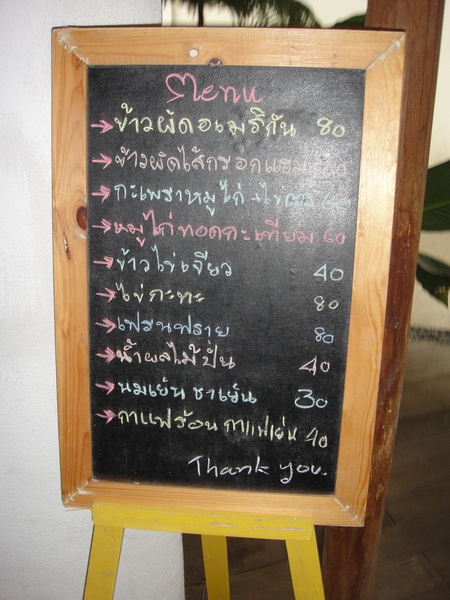 Menu
→ ข้าวผัดอเมริกัน 80
→ ข้าวผัดไส้กรอกแฮม
→ กะเพราหมูไก่ +ไข่ดาว
→ หมูไก่ทอดกะเทียม 60
→ ข้าวไข่เจียว 40
→ ไข่กะทะ 80
→ เฟรนฟราย 80
→ น้ำผลไม้ปั่น 40
→ นมเย็น ชาเย็น 30
→ กาแฟร้อน กาแฟเย็น 40
Thank you.